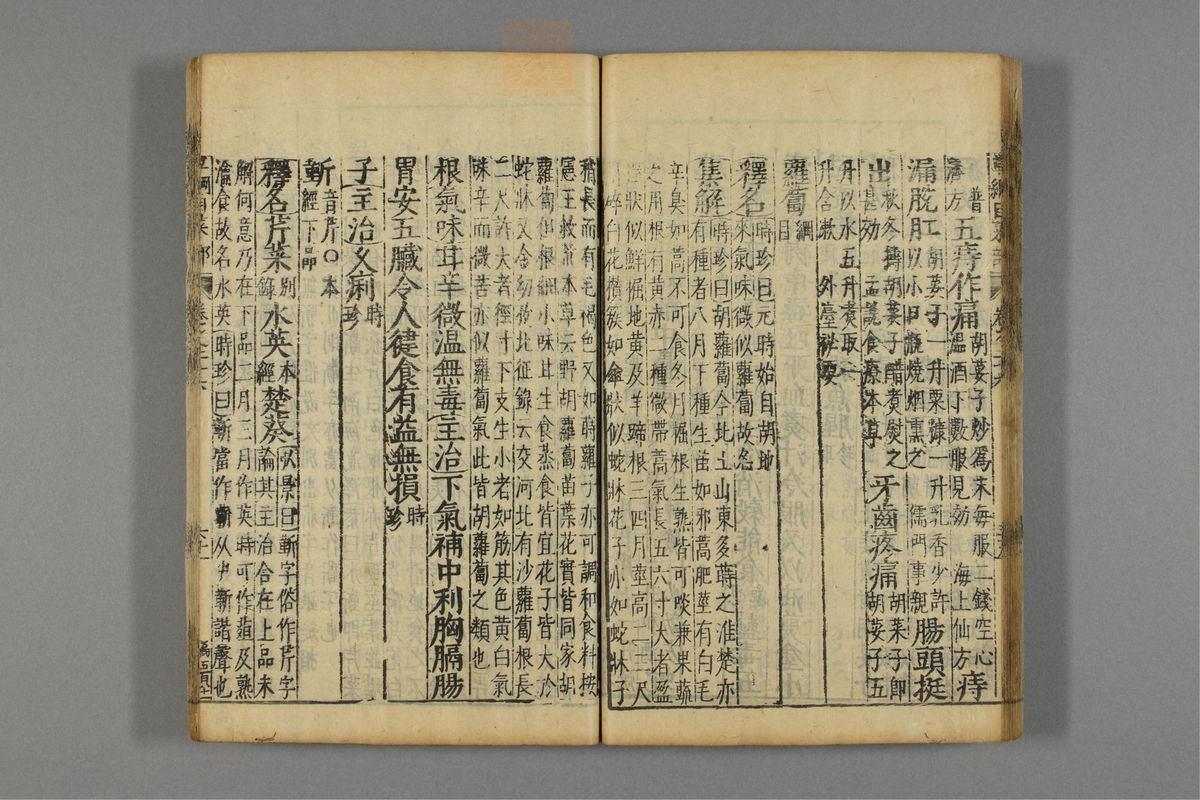 普濟方五痔作痛胡荽子炒爲末每服二錢空心溫酒下數服見効 海上仙方痔
漏脫肛胡荽子一升粟糠一升乳香少許以小口瓶燒烟熏之 儒門事親腸頭挺
出秋冬搗胡荽子醋煮熨之甚効 孟詵食療本草牙齒疼痛胡菜子即胡荽子五
升以水五升煮取一升含漱 外臺秘要
蘿蔔綱目
釋名時珍曰元時始自胡地來氣味微似蘿蔔故名
集解時珍曰胡蘿蔔今北土山東多蒔之淮楚亦
有種者八月下種生苗如邪蒿肥莖有白毛
辛臭如蒿不可食冬月掘根生熟皆可啖兼果蔬
之用根有黃赤二種微帶蒿氣長五六寸大者盈
握狀似鮮掘地黃及羊蹄根三四月莖高二三尺
碎白花攢簇如傘狀似蛇牀花子亦如蛇牀子
稍長而有毛褐色又如蒔蘿子亦可調和食料按
憲王救荒本草云野胡蘿蔔苗葉花實皆同家胡
蘿蔔但根細小味甘生食蒸食皆宜花子皆大於
蛇牀又金幼孜北征錄云交河北有沙蘿蔔根長
二尺許大者徑寸下支生小者如筯其色黃白氣
味辛而微苦亦似蘿蔔氣此皆胡蘿蔔之類也
根氣味甘辛微溫無毒主治下氣補中利胸膈腸
胃安五臟令人健食有益無損時珍
子主治久痢時珍
蘄音芹○本經下品
釋名芹菜別錄水英本經楚葵弘景曰蘄字俗作芹字論其主治合在上品未
解何意乃在下品二月三月作英時可作葅及熟
瀹食故名水英時珍曰蘄當作蘄從屮蘄諧聲也